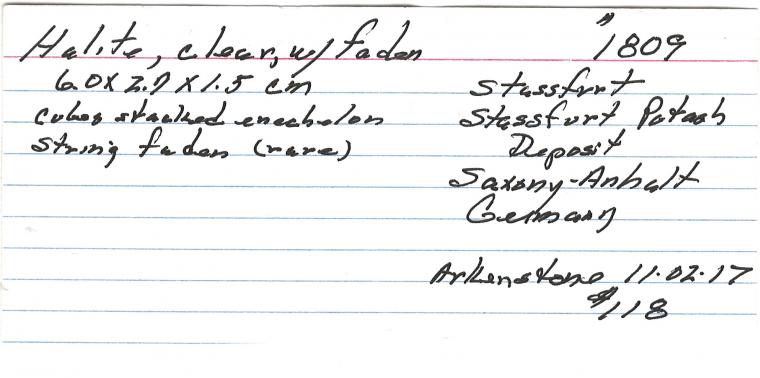 Halite, clear, w/ faden
6.0 x 2.7 x 1.5 cm
cubes stacked enechelon
string faden (rare)
#1809
Stassfurt
Stassfurt Potash
Deposit
Saxony-Anhalt
Germany
Arkenstone 11.02.17
$118